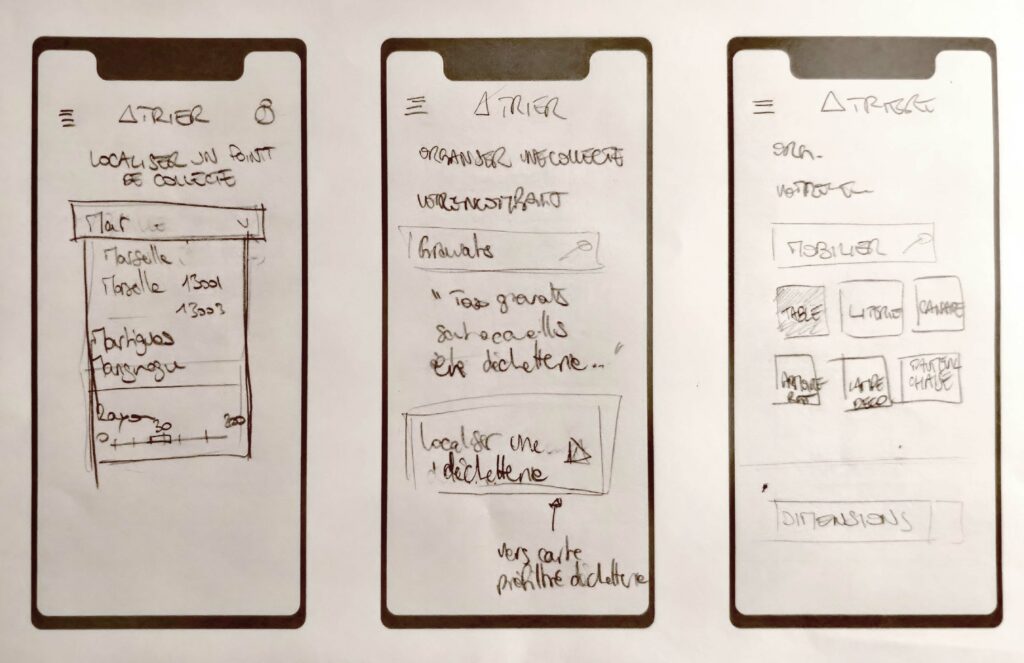 ATRIER
LOCALISER UN POINT
DE COLLECTE
Mar
Marseille
Marseille 13001
13003
Martigues
Marignagu
Rayon
0 30 200
ATRIER
ORGANISER UNE COLLECTE
VOTRE ENCOMBRANT
Gravats
" Tous gravats
sont accueillis
en déchetterie... "
Localiser une
déchetterie
vers carte
préfiltré déchetterie
ATRIER
ORGA.
VOTRE E
MOBILIER
TABLE LITERIE CANAPE
ARMOIRE LAMPE FAUTEUIL
DECO CHAISE
DIMENSIONS